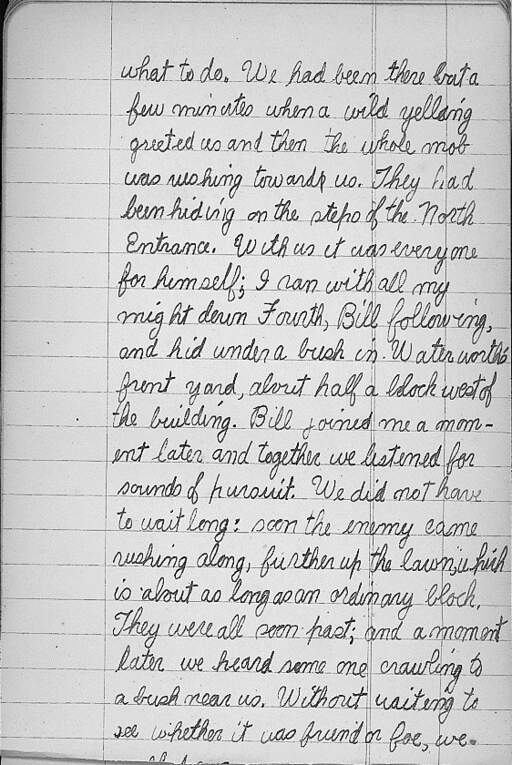 what to do. We had been there but a
few minutes when a wild yelling
greeted us and then the whole mob
was rushing towards us. They had
been hiding on the steps of the North
Entrance. With us it was every one
for himself; I ran with all my
might down Fourth, Bill following,
and hid under a bush in Waterworth's
front yard, about half a block west of
the building. Bill joined me a mom-
ent later and together we listened for
sounds of pursuit. We did not have
to wait long: soon the enemy came
rushing along, further up the lawn, which
is about as long as an ordinary block.
They were all soon past; and a moment
later we heard some one crawling to
a bush near us. Without waiting to
see whether it was friend or foe, we